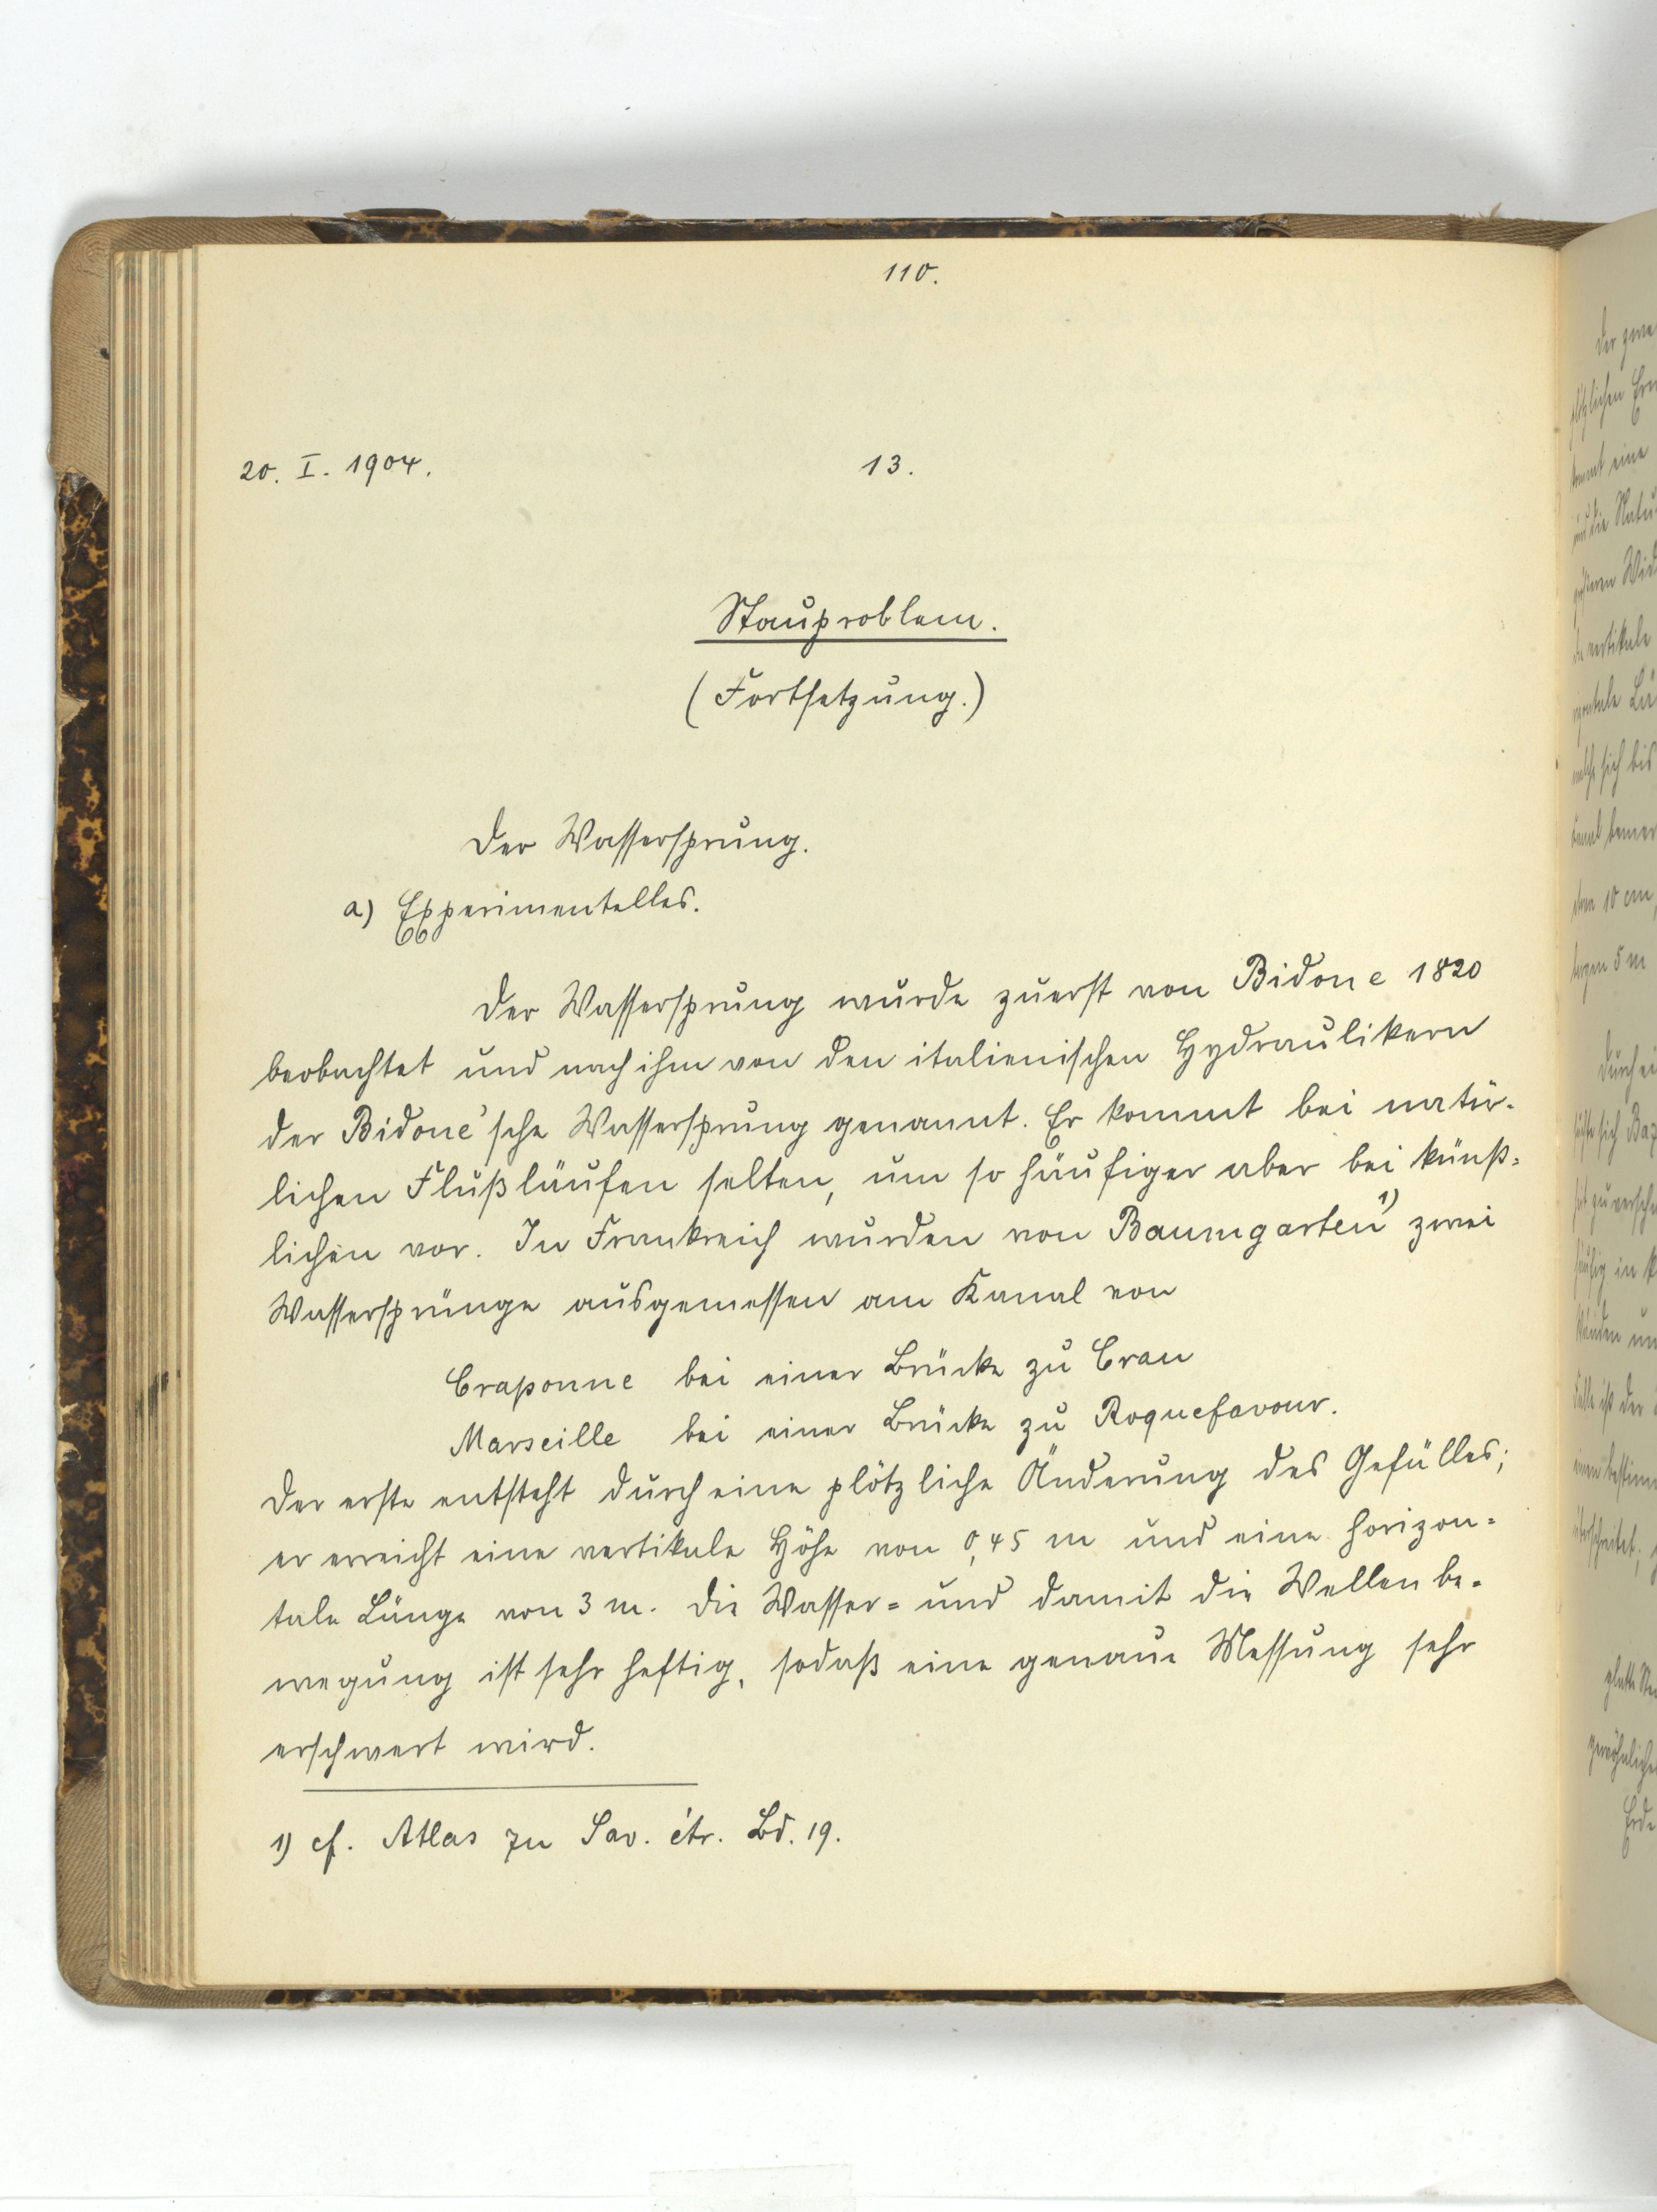 110.
20. I. 1904.
13.
Stauproblem.
(Fortsetzung.)
Der Wassersprung.
a) Experimentelles.
Der Wassersprung wurde zuerst von Bidone 1820
beobachtet und nach ihm von den italienischen Hydraulikern
der Bidone'sche Wassersprung genannt. Er kommt bei natür-
lichen Flußläufen selten, um so häufiger aber bei künst-
lichen vor. In Frankreich wurden von Baumgarten 1) zwei
Wassersprünge ausgemessen am Kanal von
Craponne bei einer Brücke zu Crau
Marseille bei einer Brücke zu Roquefavour.
Der erste entsteht durch eine plötzliche Änderung des Gefälles;
er erreicht eine vertikale Höhe von 0,45 m und eine horizon-
tale Länge von 3 m. Die Wasser- und damit die Wellenbe-
wegung ist sehr heftig, sodaß eine genaue Messung sehr
erschwert wird.
1) cf. Atlas zu Sav. étr. Bd. 19.